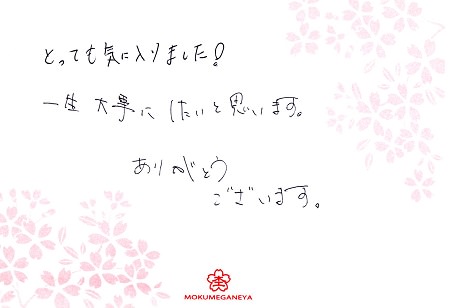 とっても気に入りました!
一生大事にしたいと思います。
ありがとう
ございます。
MOKUMEGANEYA